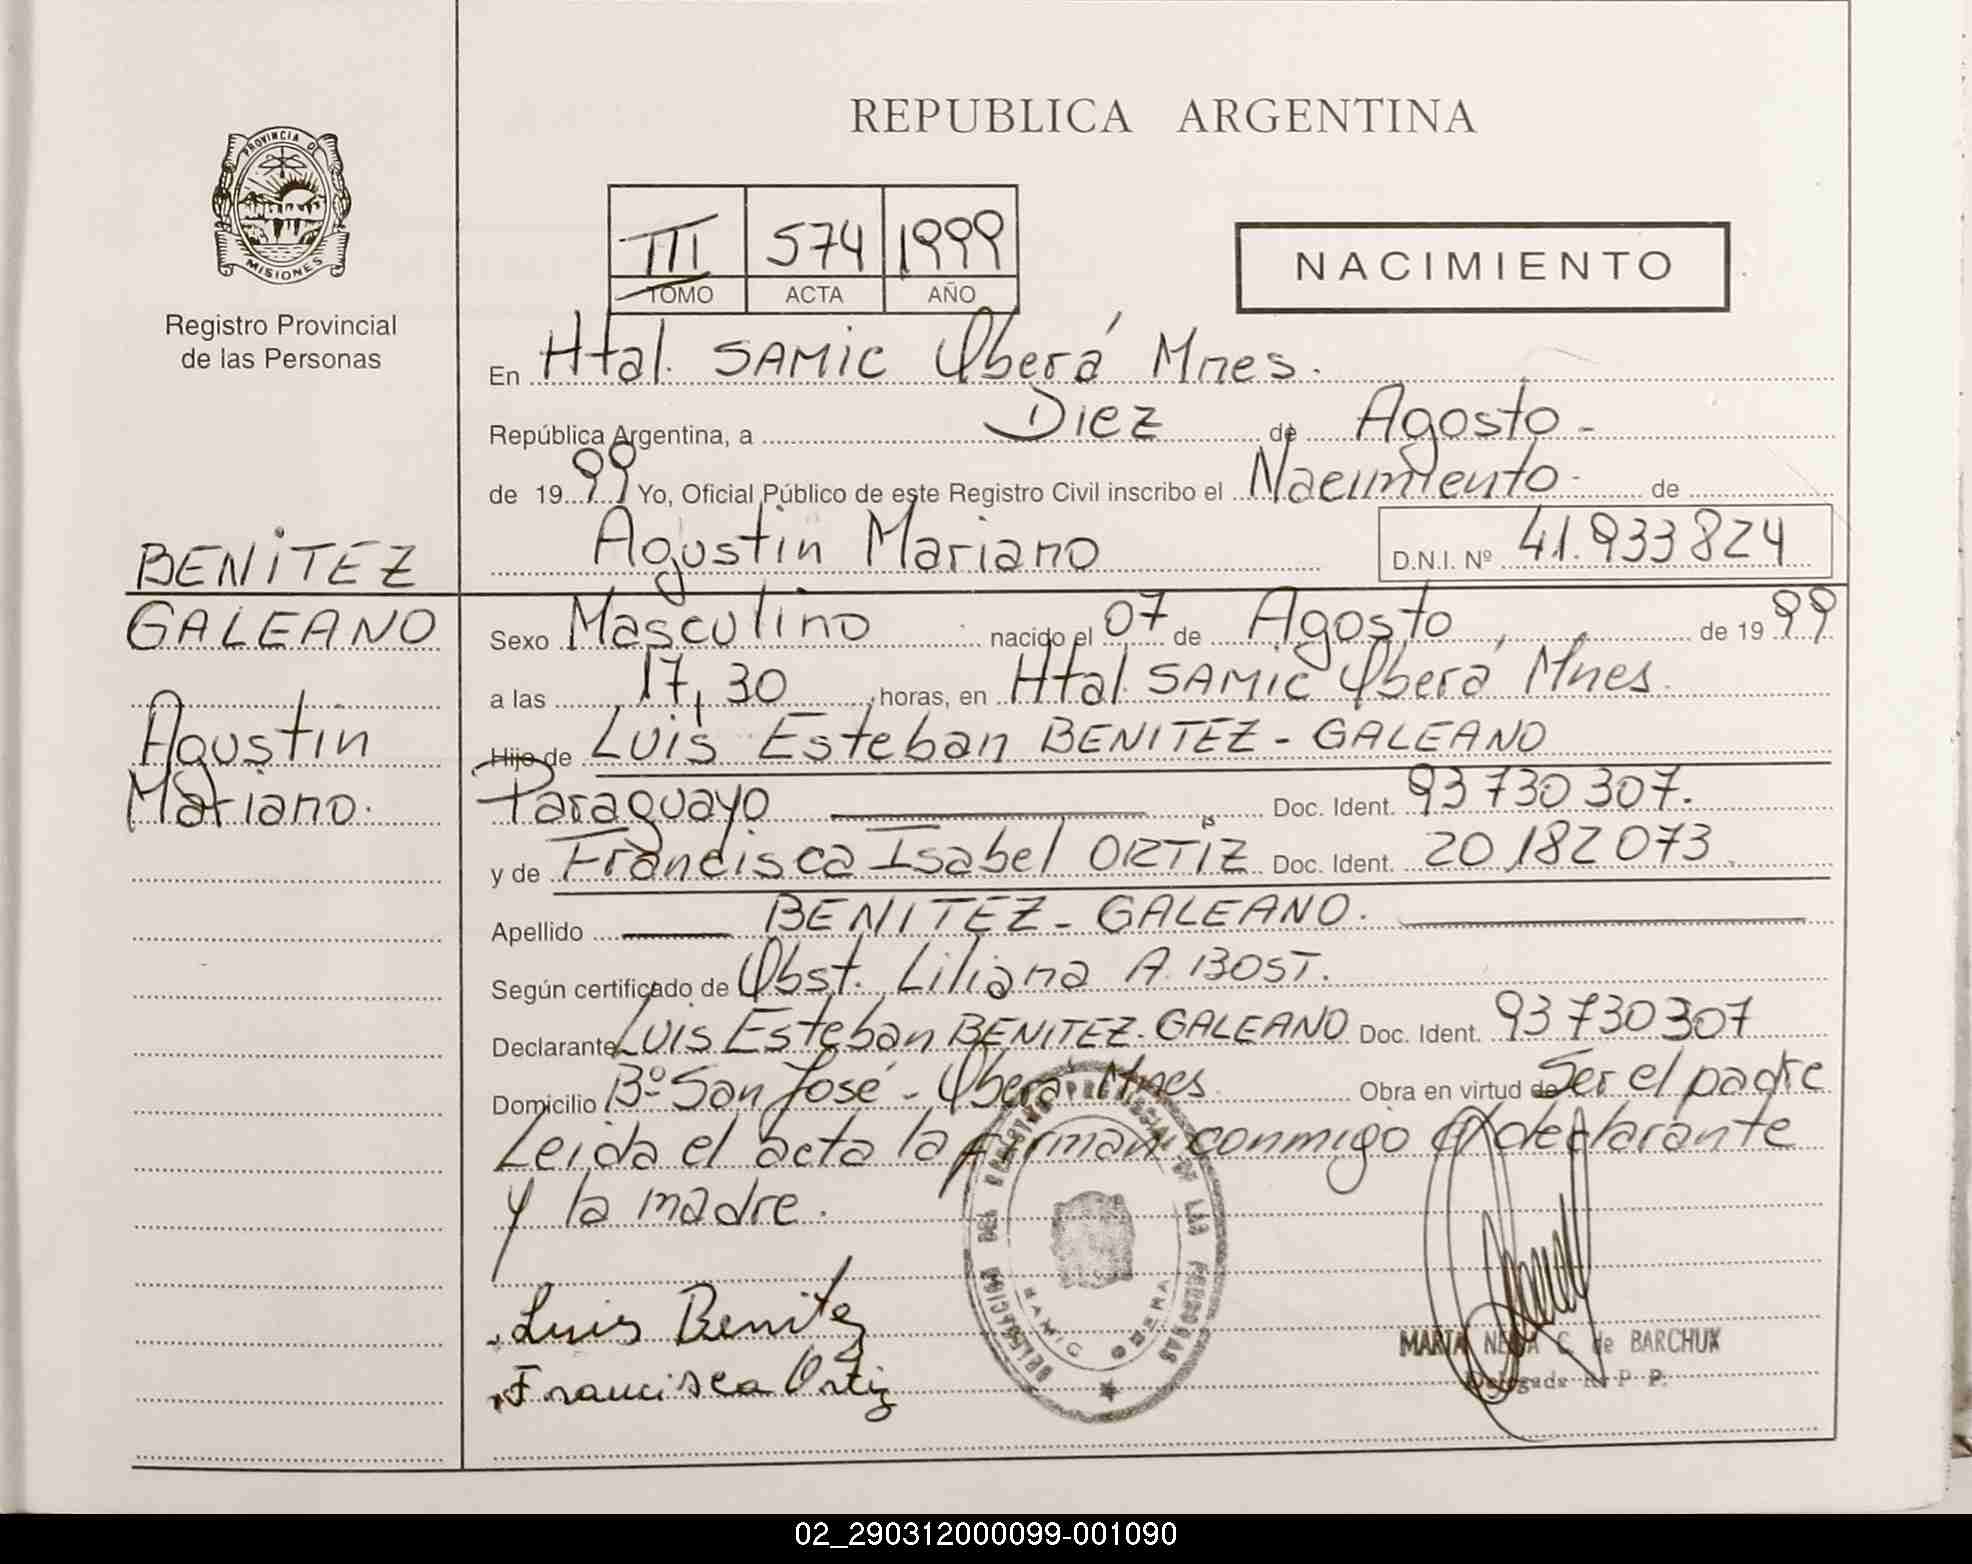 REPUBLICA ARGENTINA
PROVINCIA D
MISIONES
Registro Provincial
de las Personas
III 574 1999
TOMO ACTA AÑO
NACIMIENTO
En Htal. SAMIC Oberá Mnes.
República Argentina, a Diez de Agosto -
de 1999 Yo, Oficial Público de este Registro Civil inscribo el Nacimiento - de
Agustin Mariano D.N.I. Nº 41.933824
BENITEZ
GALEANO
Agustin
Mariano.
Sexo Masculino nacido el 07 de Agosto, de 1999
a las 17,30 horas, en Htal. SAMIC Oberá Mnes.
Hijo de Luis Esteban BENITEZ - GALEANO
Paraguayo Doc. Ident. 93730307.
y de Francisca Isabel ORTIZ Doc. Ident. 20182073
Apellido BENITEZ - GALEANO.
Según certificado de Obst. Liliana A. BOST.
Declarante Luis Esteban BENITEZ. GALEANO Doc. Ident. 93730307
Domicilio Bº San José - Oberá Mnes. Obra en virtud de Ser el padre
Leida el acta la firman conmigo el declarante
y la madre.
DELEGACION DEL REGISTRO PROVINCIAL DE LAS PERSONAS
SAMIC OBERA
Luis Benitez
Francisca Ortiz
MARTA C. de BARCHUK
Delegada R. P. P.
02_290312000099-001090